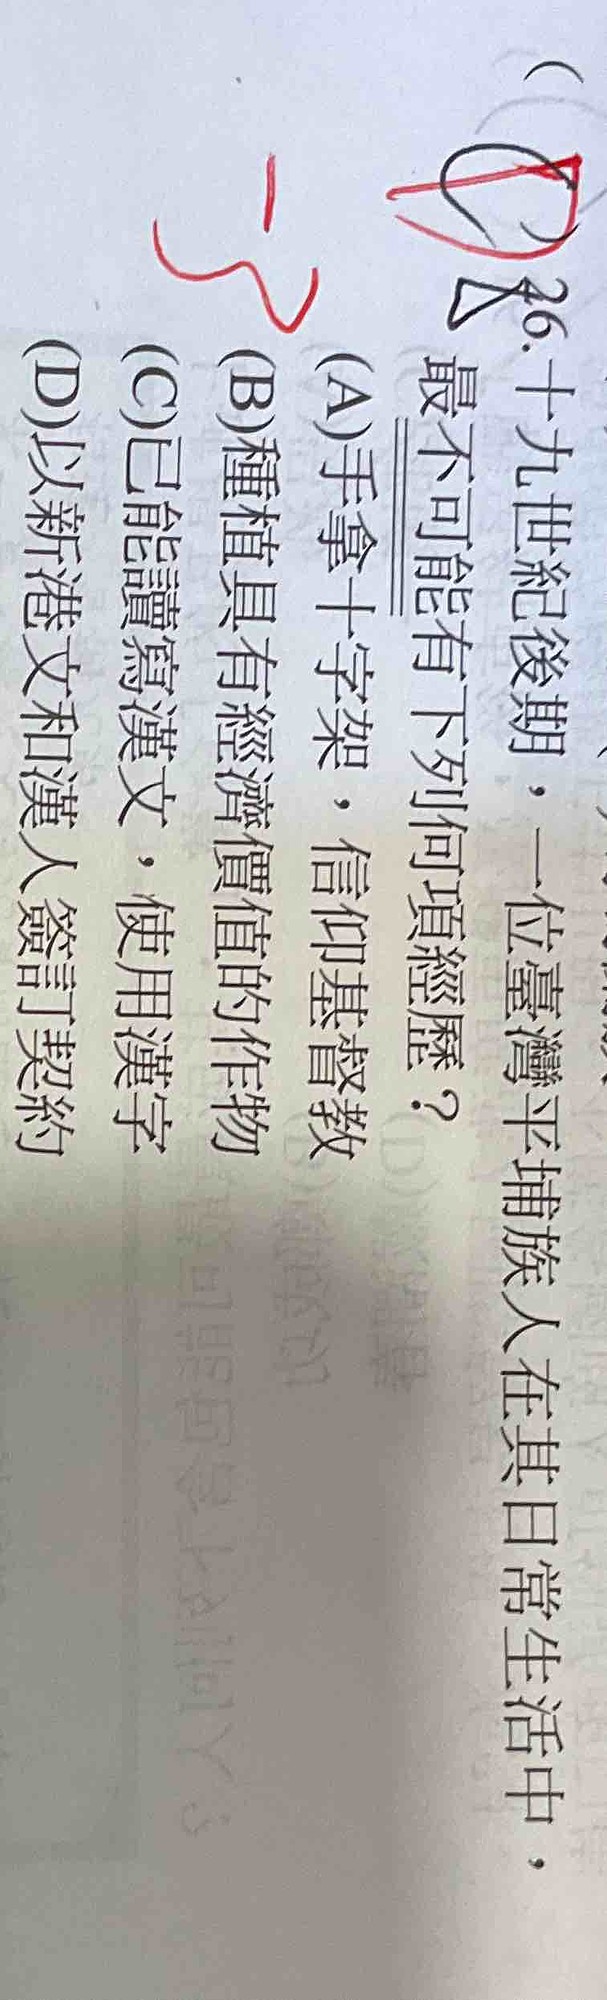 (C) 26.十九世紀後期，一位臺灣平埔族人在其日常生活中，
最不可能有下列何項經歷？
(A)手拿十字架，信仰基督教
(B)種植具有經濟價值的作物
(C)已能讀寫漢文，使用漢字
(D)以新港文和漢人簽訂契約
D
-3